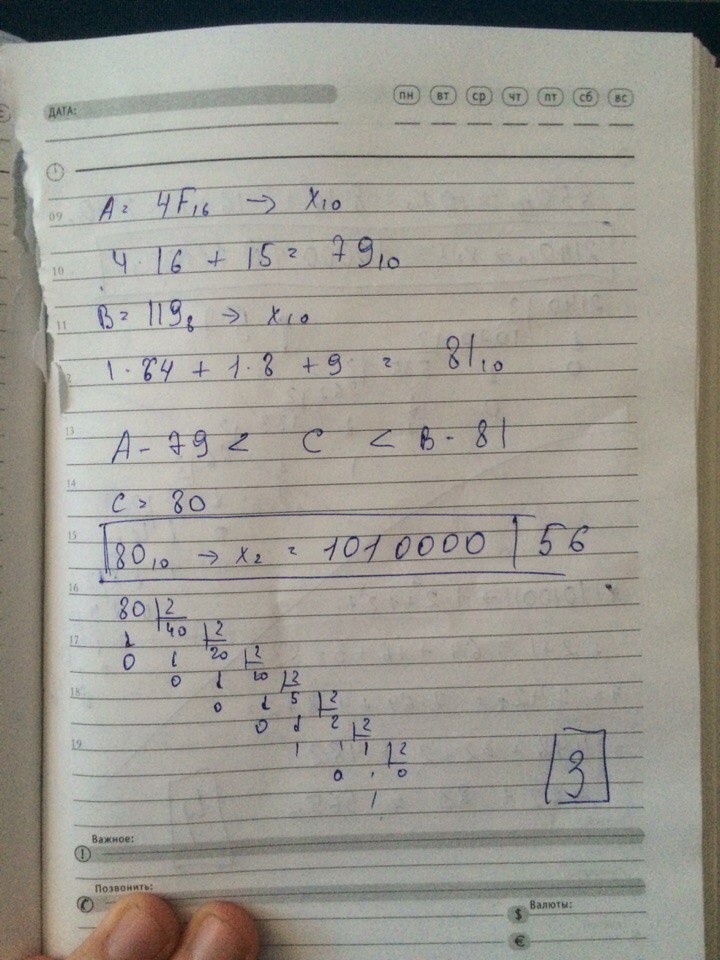 пн вт ср чт пт сб вс
ДАТА:
09 A= 4F₁₆ → X₁₀
10 4·16 + 15 = 79₁₀
11 B= 119₈ → x₁₀
1·64 + 1·8 + 9 = 81₁₀
13 A - 79 < C < B - 81
14 C = 80
15 80₁₀ → x₂ = 1010000 56
16 80 2
17 40 2
0 20 2
0
18 0 5 2
0 2 2
19 1 1 2
0 0
1
3
Важное:
Позвонить:
Валюты:
$
€